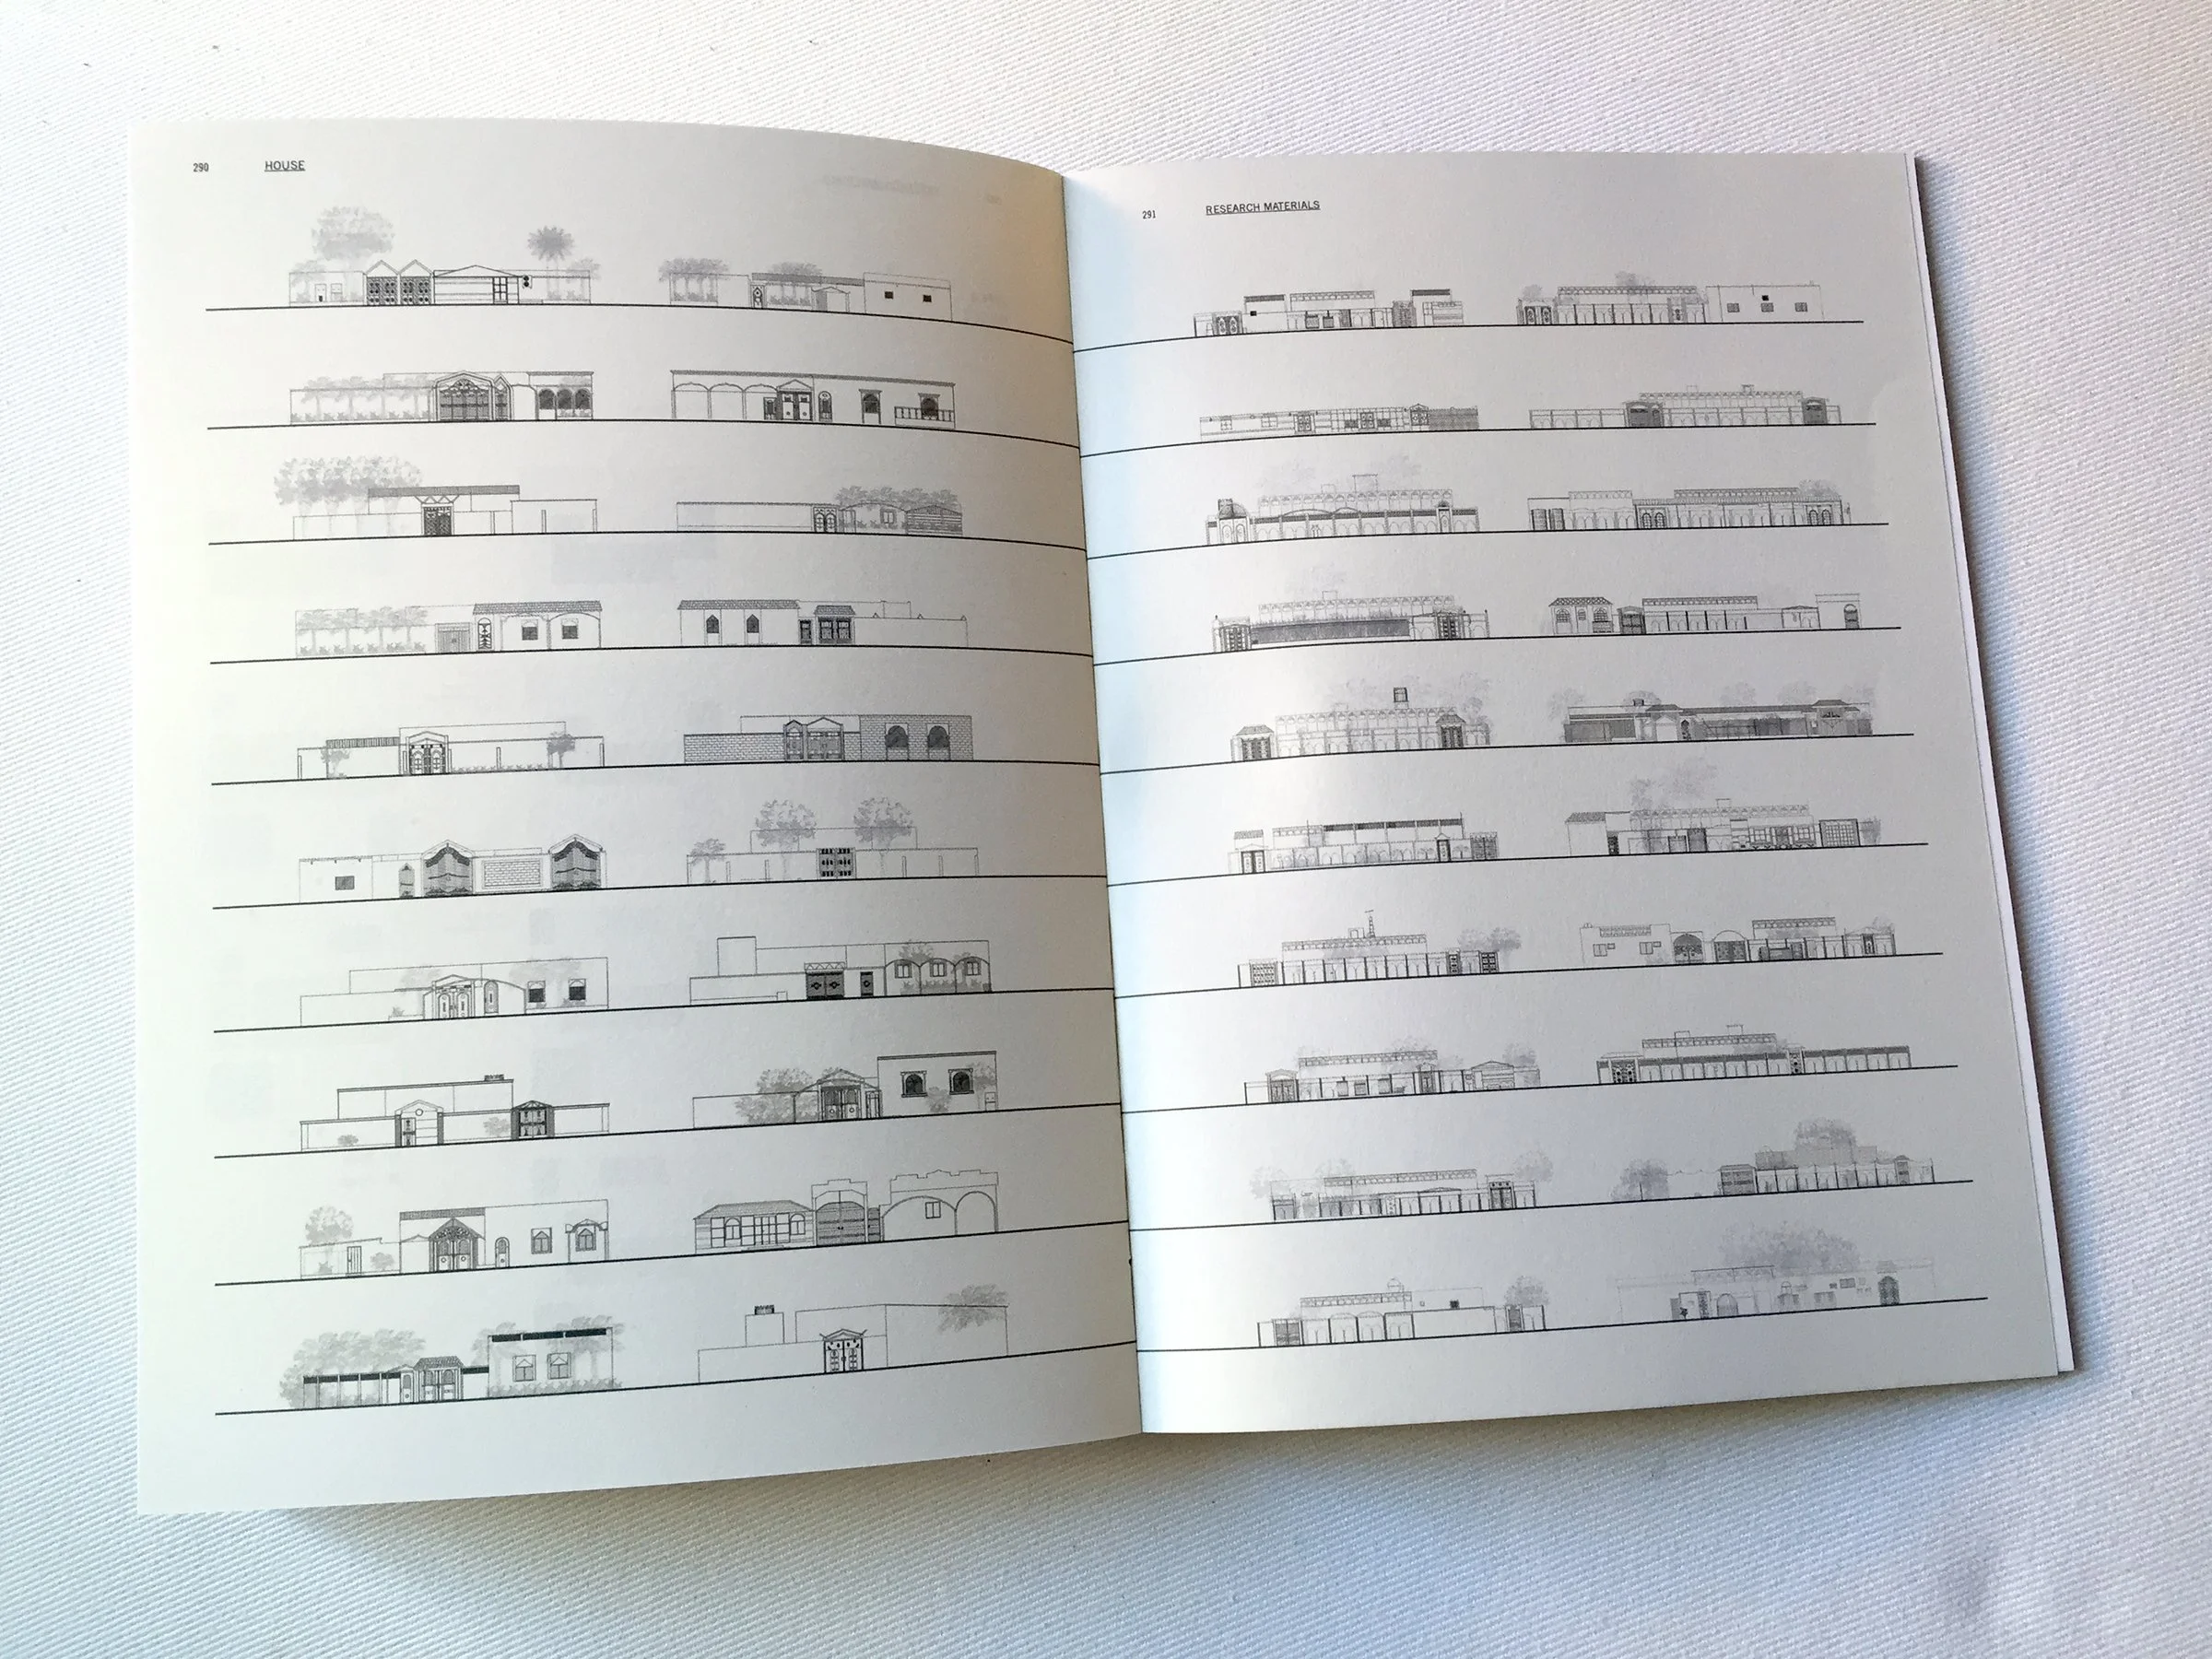 290
HOUSE
291
RESEARCH MATERIALS